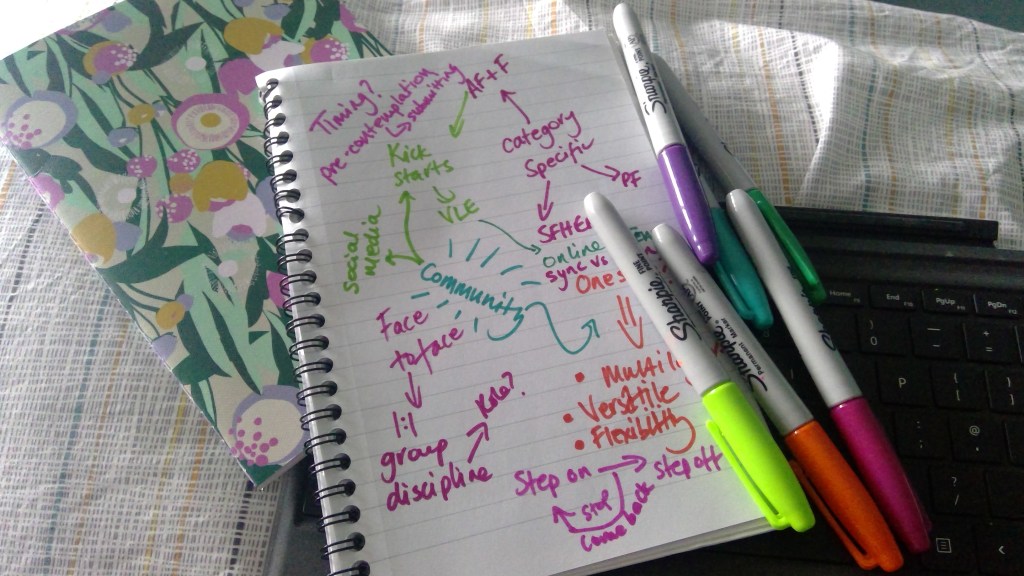 Timing?
pre-contemplation
submitting
AF+F
Kick
starts
VLE
Category
Specific
PF
SFHEA
Social
Media
Community
online
sync vs
Face
to face
1:1
group
discipline
Role?
• Versatile
• Flexibility
Step on
step off
stop
come back
Sharpie
Sharpie
Sharpie
Sharpie
Home
End
PgUp
PgDn
)
0
—
+
=
P
{
[
}
]
:
;
@
?
/